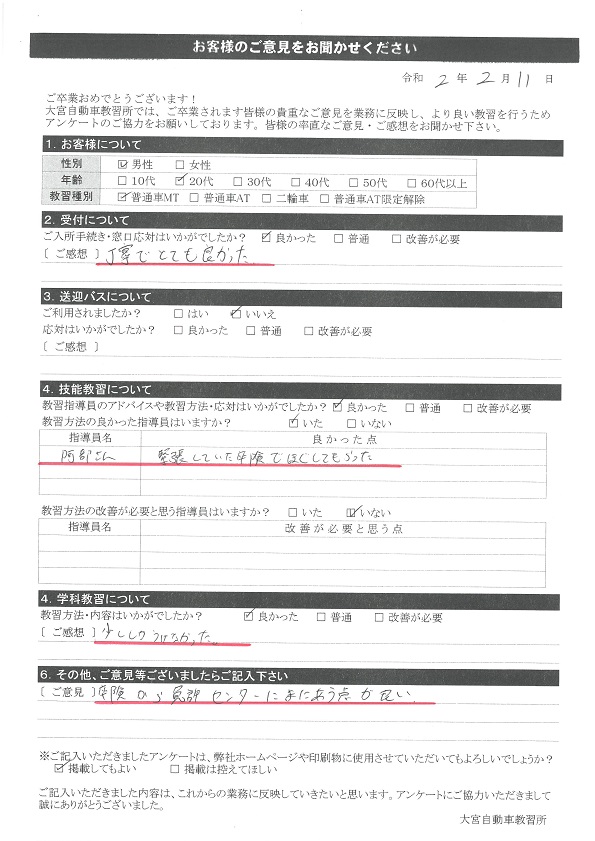 お客様のご意見をお聞かせください
令和 2 年 2 月 11 日
ご卒業おめでとうございます！
大宮自動車教習所では、ご卒業されます皆様の貴重なご意見を業務に反映し、より良い教習を行うため
アンケートのご協力をお願いしております。皆様の率直なご意見・ご感想をお聞かせ下さい。
1. お客様について
性別 ☑男性 □女性
年齢 □10代 ☑20代 □30代 □40代 □50代 □60代以上
教習種別 ☑普通車MT □普通車AT □二輪車 □普通車AT限定解除
2. 受付について
ご入所手続き・窓口応対はいかがでしたか？ ☑良かった □普通 □改善が必要
[ ご感想 ] 丁寧でとても良かった
3. 送迎バスについて
ご利用されましたか？ □はい ☑いいえ
応対はいかがでしたか？ □良かった □普通 □改善が必要
[ ご感想 ]
4. 技能教習について
教習指導員のアドバイスや教習方法・応対はいかがでしたか？ ☑良かった □普通 □改善が必要
教習方法の良かった指導員はいますか？ ☑いた □いない
指導員名 良かった点
阿部さん 緊張していた卒検でほぐしてもらった
教習方法の改善が必要と思う指導員はいますか？ □いた ☑いない
指導員名 改善が必要と思う点
4. 学科教習について
教習方法・内容はいかがでしたか？ ☑良かった □普通 □改善が必要
[ ご感想 ] 少し
6. その他、ご意見等ございましたらご記入下さい
[ ご意見 ] 卒検から センターにまにあう点が良い.
※ご記入いただきましたアンケートは、弊社ホームページや印刷物に使用させていただいてもよろしいでしょうか？
☑掲載してもよい □掲載は控えてほしい
ご記入いただきました内容は、これからの業務に反映していきたいと思います。アンケートにご協力いただきまして
誠にありがとうございました。
大宮自動車教習所